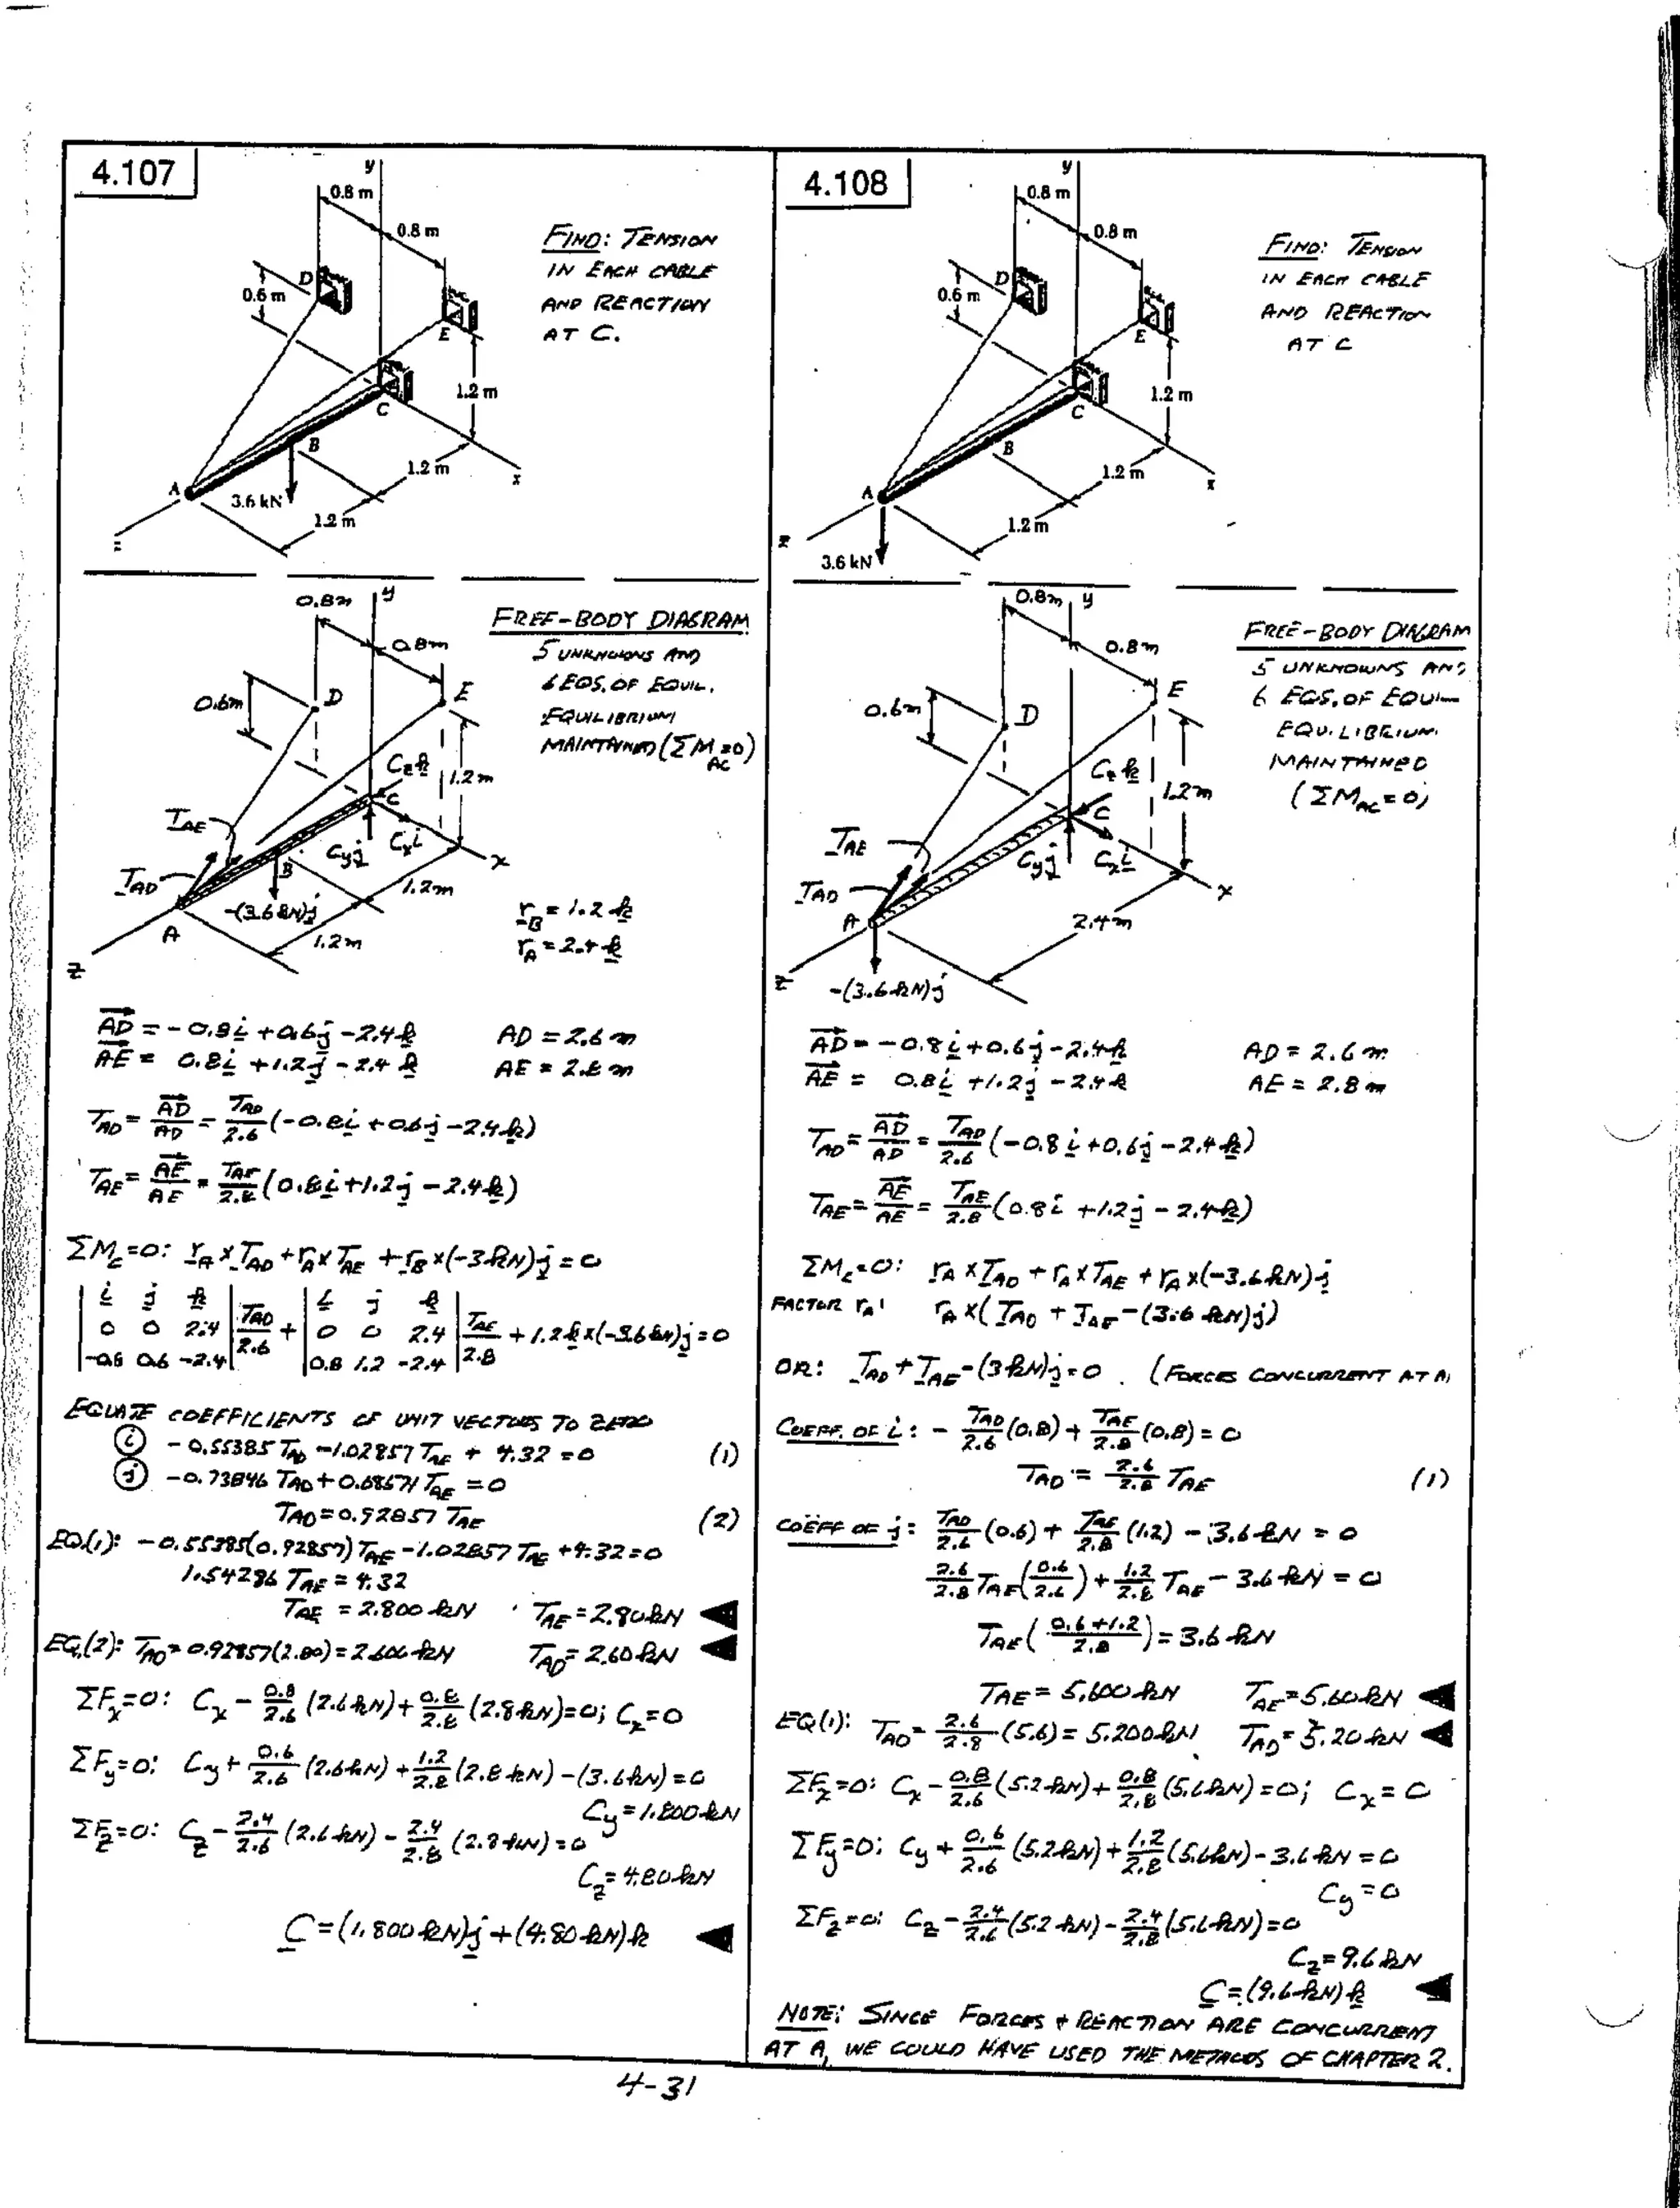 4.107
y
0.8 m
0.8 m
D
0.6 m
E
1.2 m
C
B
1.2 m
x
A
3.6 kN
1.2 m
z
FIND: TENSION
IN EACH CABLE
AND REACTION
AT C.
0.8m
y
0.8m
D
E
0.6m
C_z k
1.2m
C
T_AE
C_y j
C_x i
x
T_AD
B
1.2m
-(3.6 kN)j
A
1.2m
z
FREE-BODY DIAGRAM
5 UNKNOWNS AND
6 EQS. OF EQUIL.
EQUILIBRIUM
MAINTAINED (ΣM_AC=0)
r_B = 1.2 k
r_A = 2.4 k
AD = -0.8i + 0.6j - 2.4k AD = 2.6 m
AE = 0.8i + 1.2j - 2.4k AE = 2.8 m
T_AD = AD/AD = T_AD/2.6 (-0.8i + 0.6j - 2.4k)
T_AE = AE/AE = T_AE/2.8 (0.8i + 1.2j - 2.4k)
ΣM_C=0: r_A × T_AD + r_A × T_AE + r_B × (-3 kN)j = 0
| i j k | | i j k |
| 0 0 2.4 | T_AD/2.6 + | 0 0 2.4 | T_AE/2.8 + 1.2k × (-3.6 kN)j = 0
| -0.8 0.6 -2.4 | | 0.8 1.2 -2.4 |
EQUATE COEFFICIENTS OF UNIT VECTORS TO ZERO
(i) -0.55385 T_AD - 1.02857 T_AE + 4.32 = 0 (1)
(j) -0.73846 T_AD + 0.68571 T_AE = 0
T_AD = 0.92857 T_AE (2)
EQ.(1): -0.55385(0.92857) T_AE - 1.02857 T_AE + 4.32 = 0
1.54286 T_AE = 4.32
T_AE = 2.800 kN T_AE = 2.80 kN ◀
EQ.(2): T_AD = 0.92857(2.80) = 2.600 kN T_AD = 2.60 kN ◀
ΣF_x=0: C_x - 0.8/2.6 (2.6 kN) + 0.8/2.8 (2.8 kN) = 0; C_x = 0
ΣF_y=0: C_y + 0.6/2.6 (2.6 kN) + 1.2/2.8 (2.8 kN) - (3.6 kN) = 0
C_y = 1.800 kN
ΣF_z=0: C_z - 2.4/2.6 (2.6 kN) - 2.4/2.8 (2.8 kN) = 0
C_z = 4.80 kN
C = (1.800 kN)j + (4.80 kN)k ◀
4.108
y
0.8 m
0.8 m
D
0.6 m
E
1.2 m
C
B
1.2 m
x
A
1.2 m
z
3.6 kN
FIND: TENSION
IN EACH CABLE
AND REACTION
AT C
0.8m
y
0.8m
E
0.6m
D
C_z k
1.2m
C
T_AE
C_y j
C_x i
x
T_AD
A
2.4m
z
-(3.6 kN)j
FREE-BODY DIAGRAM
5 UNKNOWNS AND
6 EQS. OF EQUIL
EQUILIBRIUM
MAINTAINED
(ΣM_AC = 0)
AD = -0.8i + 0.6j - 2.4k AD = 2.6 m
AE = 0.8i + 1.2j - 2.4k AE = 2.8 m
T_AD = AD/AD = T_AD/2.6 (-0.8i + 0.6j - 2.4k)
T_AE = AE/AE = T_AE/2.8 (0.8i + 1.2j - 2.4k)
ΣM_C=0: r_A × T_AD + r_A × T_AE + r_A × (-3.6 kN)j
FACTOR r_A: r_A × (T_AD + T_AE - (3.6 kN)j)
OR: T_AD + T_AE - (3 kN)j = 0 . (FORCES CONCURRENT AT A)
COEFF. OF i: - T_AD/2.6 (0.8) + T_AE/2.8 (0.8) = 0
T_AD = 2.6/2.8 T_AE (1)
COEFF OF j: T_AD/2.6 (0.6) + T_AE/2.8 (1.2) - 3.6 kN = 0
2.6/2.8 T_AE (0.6/2.6) + 1.2/2.8 T_AE - 3.6 kN = 0
T_AE (0.6+1.2/2.8) = 3.6 kN
T_AE = 5.600 kN T_AE = 5.60 kN ◀
EQ(1): T_AD = 2.6/2.8 (5.6) = 5.200 kN T_AD = 5.20 kN ◀
ΣF_x=0: C_x - 0.8/2.6 (5.2 kN) + 0.8/2.8 (5.6 kN) = 0; C_x = 0
ΣF_y=0: C_y + 0.6/2.6 (5.2 kN) + 1.2/2.8 (5.6 kN) - 3.6 kN = 0
C_y = 0
ΣF_z=0: C_z - 2.4/2.6 (5.2 kN) - 2.4/2.8 (5.6 kN) = 0
C_z = 9.6 kN
C = (9.6 kN)k ◀
NOTE: SINCE FORCES + REACTION ARE CONCURRENT
AT A, WE COULD HAVE USED THE METHODS OF CHAPTER 2.
4-31